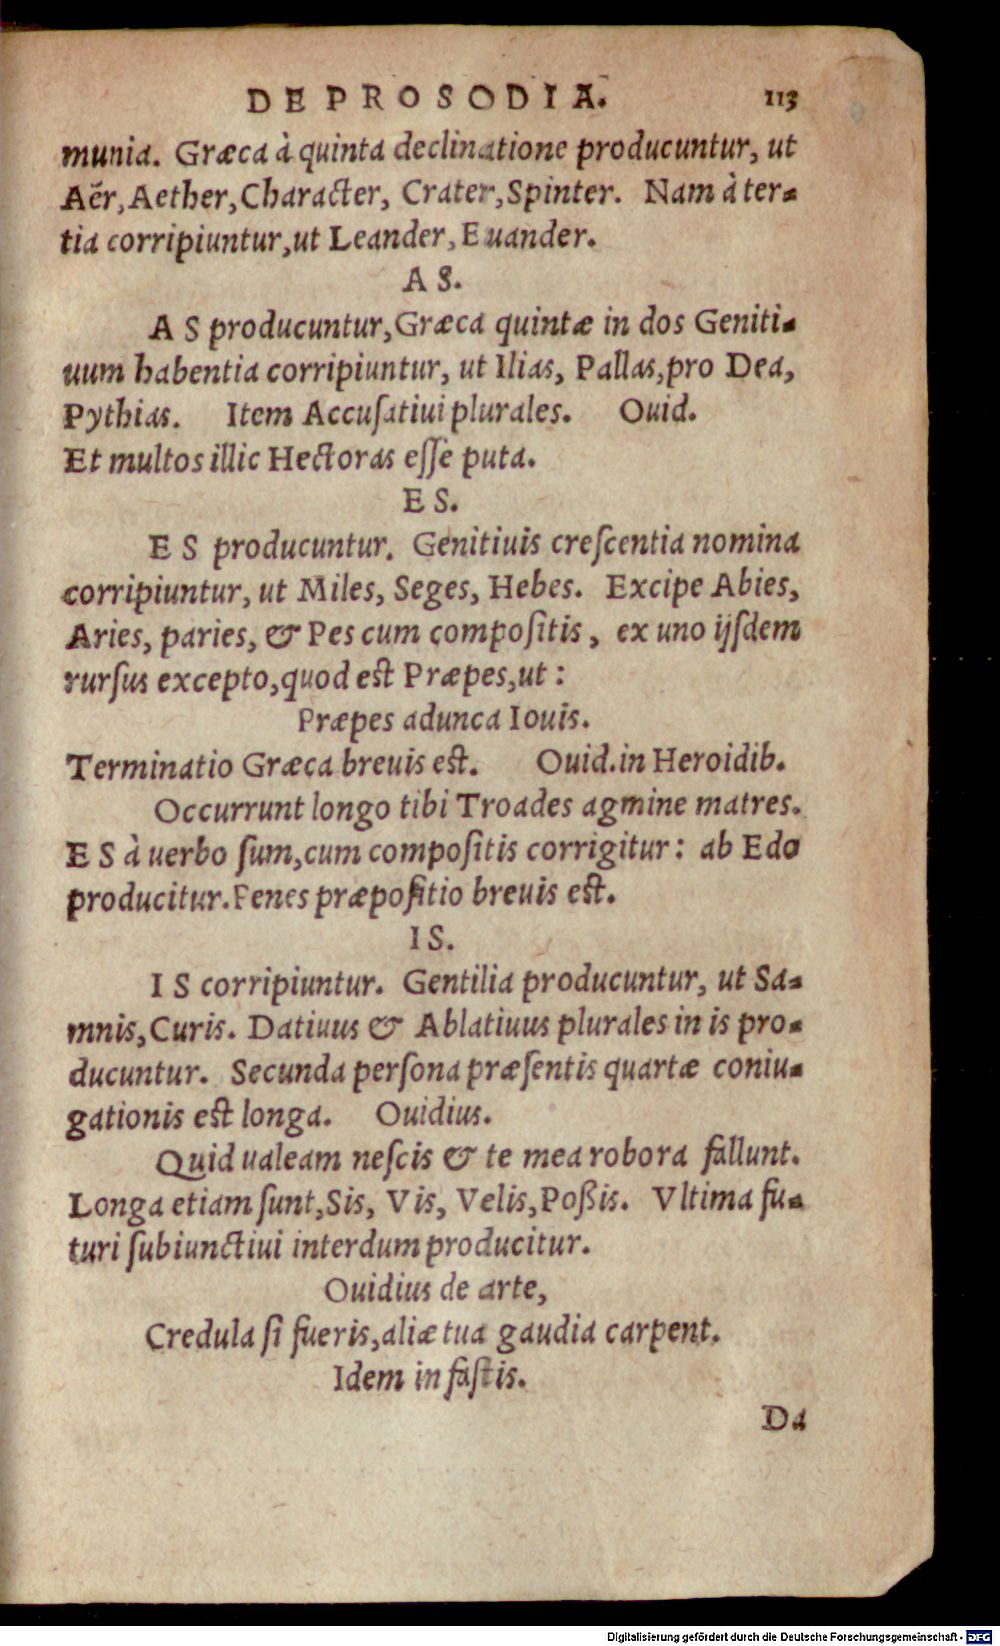 DE PROSODIA. 113
munia. Græca à quinta declinatione producuntur, ut
Aër, Aether, Character, Crater, Spinter. Nam à ter-
tia corripiuntur, ut Leander, Euander.
A S.
A S producuntur, Græca quintæ in dos Geniti-
uum habentia corripiuntur, ut Ilias, Pallas, pro Dea,
Pythias. Item Accuſatiui plurales. Ouid.
Et multos illic Hectoras eſſe puta.
E S.
E S producuntur. Genitiuis creſcentia nomina
corripiuntur, ut Miles, Seges, Hebes. Excipe Abies,
Aries, paries, & Pes cum compoſitis, ex uno ijſdem
rurſus excepto, quod est Præpes, ut:
Præpes adunca Iouis.
Terminatio Græca breuis est. Ouid. in Heroidib.
Occurrunt longo tibi Troades agmine matres.
E S à uerbo ſum, cum compoſitis corrigitur: ab Edo
producitur. Penes præpoſitio breuis est.
I S.
I S corripiuntur. Gentilia producuntur, ut Sa-
mnis, Curis. Datiuus & Ablatiuus plurales in is pro-
ducuntur. Secunda perſona præſentis quartæ coniu-
gationis est longa. Ouidius.
Quid ualeam neſcis & te mea robora fallunt.
Longa etiam ſunt, Sis, Vis, Velis, Poßis. Vltima fu-
turi ſubiunctiui interdum producitur.
Ouidius de arte,
Credula ſi fueris, aliæ tua gaudia carpent.
Idem in faſtis.
Da
Digitalisierung gefördert durch die Deutsche Forschungsgemeinschaft - DFG